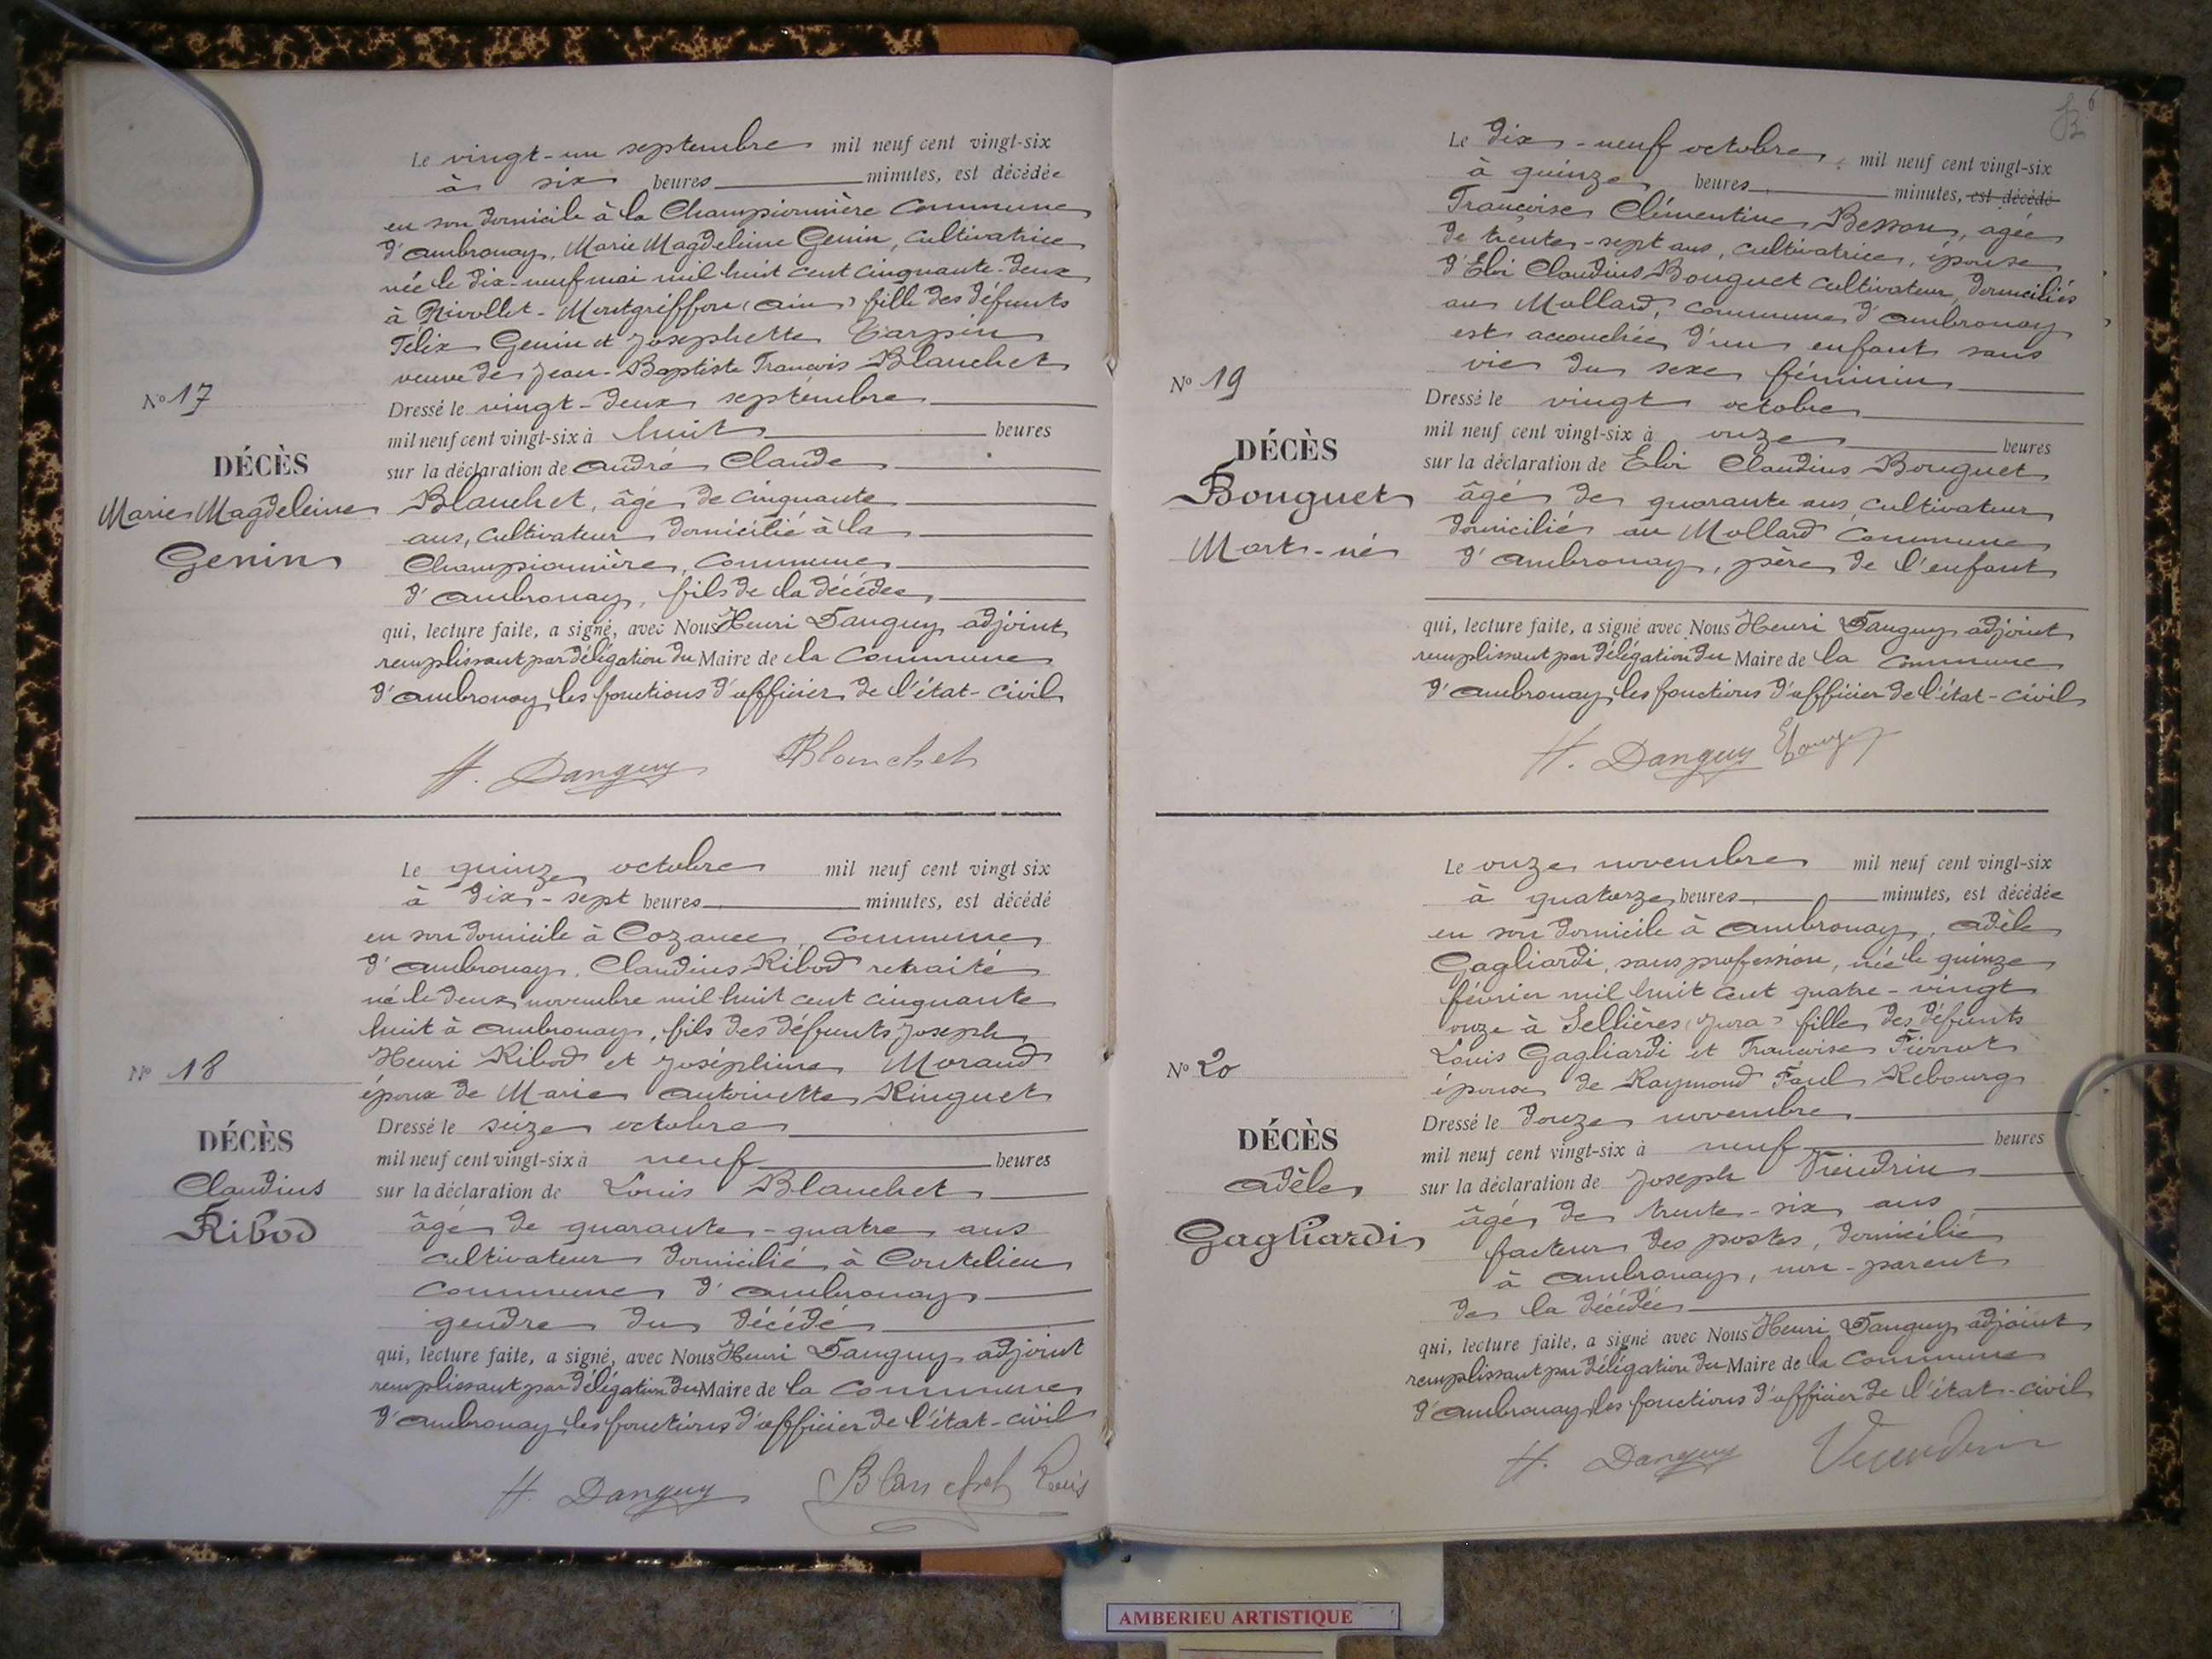 Le vingt-un septembre mil neuf cent vingt-six
à six heures minutes, est décédée
en son domicile à la Championnière Commune
d'Ambronay, Marie Magdeleine Genin, cultivatrice
née le dix-neuf mai mil huit cent cinquante-deux
à Nivollet-Montgriffon (Ain) fille des défunts
Félix Genin et Josephette Carpin
veuve de Jean-Baptiste François Blanchet
No 17
DÉCÈS
Marie Magdeleine
Genin
Dressé le vingt-deux septembre
mil neuf cent vingt-six à huit heures
sur la déclaration de André Claude
Blanchet, âgé de cinquante
ans, cultivateur domicilié à la
Championnière, Commune
d'Ambronay, fils de la décédée
qui, lecture faite, a signé, avec Nous Henri Danguy adjoint
remplissant par délégation du Maire de la Commune
d'Ambronay les fonctions d'officier de l'état-civil
H. Danguy Blanchet
Le quinze octobre mil neuf cent vingt six
à dix-sept heures minutes, est décédé
en son domicile à Cozance, Commune
d'Ambronay, Claudius Ribod retraité
né le deux novembre mil huit cent cinquante
huit à Ambronay, fils des défunts Joseph
Henri Ribod et Joséphine Morand
époux de Marie Antoinette Ringuet
No 18
DÉCÈS
Claudius
Ribod
Dressé le seize octobre
mil neuf cent vingt-six à neuf heures
sur la déclaration de Louis Blanchet
âgé de quarante-quatre ans
cultivateur domicilié à Coutelieu
Commune d'Ambronay
gendre du décédé
qui, lecture faite, a signé, avec Nous Henri Danguy adjoint
remplissant par délégation du Maire de la Commune
d'Ambronay les fonctions d'officier de l'état-civil
H. Danguy Blanchet Louis
6
Le dix-neuf octobre mil neuf cent vingt-six
à quinze heures minutes, est décédé
Françoise Clémentine Besson, agée
de trente-sept ans, cultivatrice, épouse
d'Eloi Claudius Bouguet cultivateur, domiciliés
au Mollard, Commune d'Ambronay
est accouchée d'un enfant sans
vie du sexe féminin
No 19
DÉCÈS
Bouguet
Mort-né
Dressé le vingt octobre
mil neuf cent vingt-six à onze heures
sur la déclaration de Eloi Claudius Bouguet
âgé de quarante ans, cultivateur
domicilié au Mollard Commune
d'Ambronay, père de l'enfant
qui, lecture faite, a signé avec Nous Henri Danguy adjoint
remplissant par délégation du Maire de la Commune
d'Ambronay les fonctions d'officier de l'état-civil
H. Danguy
Le onze novembre mil neuf cent vingt-six
à quatorze heures minutes, est décédée
en son domicile à Ambronay, Adèle
Gagliardi, sans profession, née le quinze
février mil huit cent quatre-vingt
onze à Sellières (Jura) fille des défunts
Louis Gagliardi et Françoise Pierrot
épouse de Raymond Paul Rebourg
No 20
DÉCÈS
Adèle
Gagliardi
Dressé le douze novembre
mil neuf cent vingt-six à neuf heures
sur la déclaration de Joseph Vieudrin
âgé de trente-six ans
facteur des postes, domicilié
à Ambronay, non-parent
de la décédée
qui, lecture faite, a signé avec Nous Henri Danguy adjoint
remplissant par délégation du Maire de la Commune
d'Ambronay les fonctions d'officier de l'état-civil
H. Danguy
AMBERIEU ARTISTIQUE